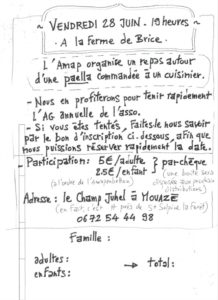 ~ VENDREDI 28 JUIN - 19 heures ~
- A la Ferme de Brice.
L'Amap organise un repas autour
d'une paella commandée à un cuisinier.
- Nous en profiterons pour tenir rapidement
l'AG annuelle de l'asso.
- Si vous êtes tentés, faites-le nous savoir
par le bon d'inscription ci-dessous, afin que
nous puissions réserver rapidement la date.
- Participation: 5€/adulte } par chèque
2.5€/enfant
(à l'ordre de
(une boîte sera
disposée aux prochaines
distributions)
Adresse: le Champ Juhel à MOUAZÉ
(en fait c'est près de St Sulpice la Forêt)
06 72 54 44 98
Famille:
adultes:
enfants:
→ total: